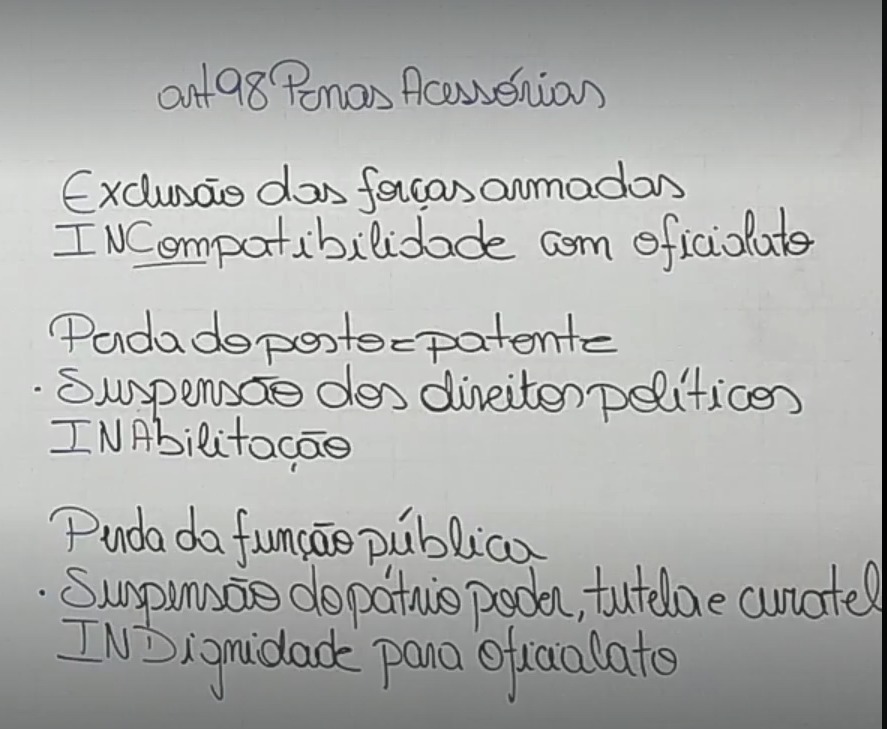 art 98 Penas Acessórias
Exclusão das forças armadas
INCompatibilidade com oficialato
Perda do posto = patente
. Suspensão dos direitos políticos
INAbilitação
Perda da função pública
. Suspensão do pátrio poder, tutela e curatel
INDignidade para oficialato